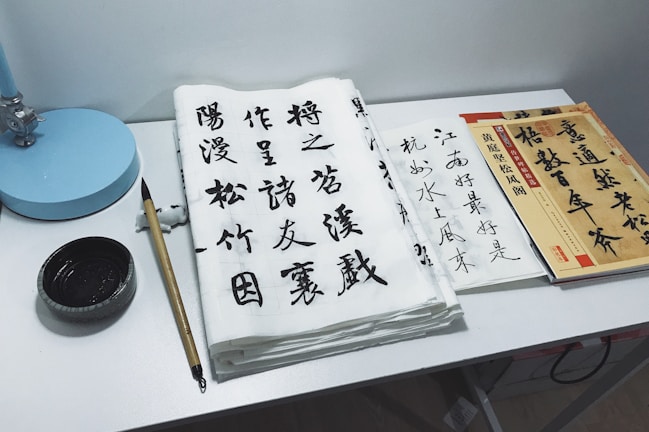 将之苕溪戲
作呈諸友襄
陽漫松竹因
江南好最好是
杭州水上風来
黄庭坚松风阁
意適然老松
梧數百年斧